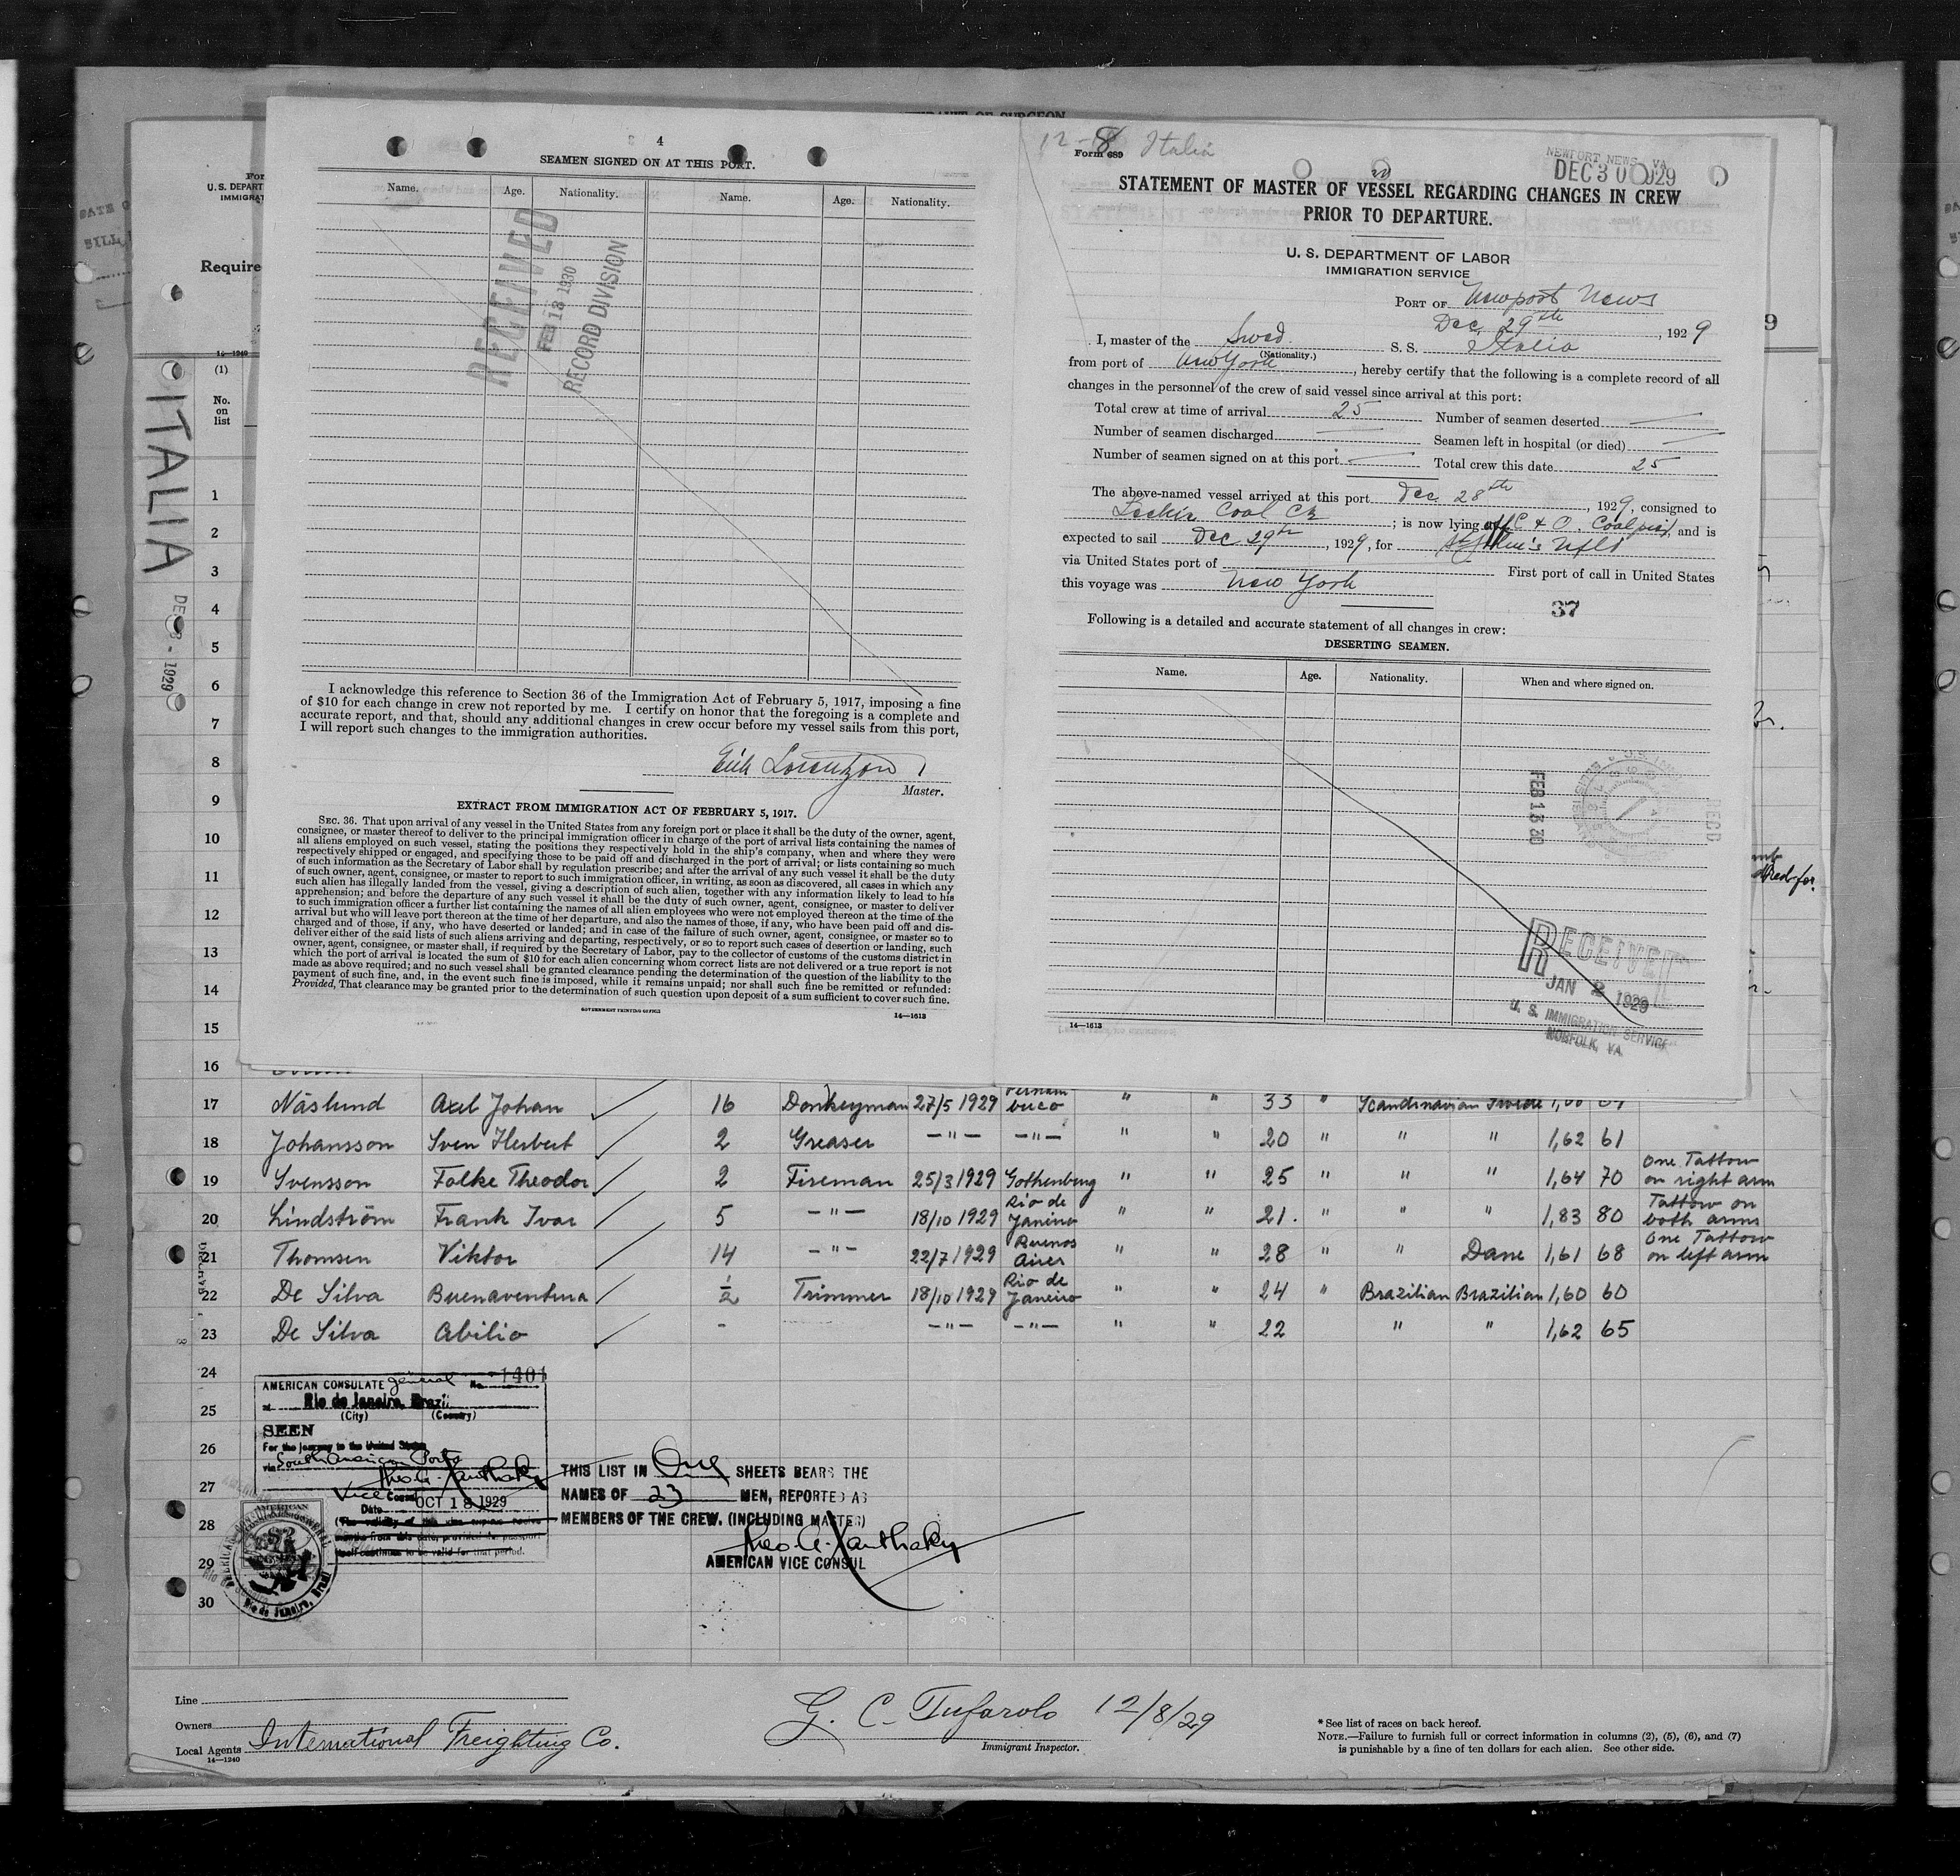 4
SEAMEN SIGNED ON AT THIS PORT.
Name. Age. Nationality. Name. Age. Nationality.
RECEIVED
FEB 18 1930
RECORD DIVISION
I acknowledge this reference to Section 36 of the Immigration Act of February 5, 1917, imposing a fine
of $10 for each change in crew not reported by me. I certify on honor that the foregoing is a complete and
accurate report, and that, should any additional changes in crew occur before my vessel sails from this port,
I will report such changes to the immigration authorities.
Erik Lorentzon
Master.
EXTRACT FROM IMMIGRATION ACT OF FEBRUARY 5, 1917.
SEC. 36. That upon arrival of any vessel in the United States from any foreign port or place it shall be the duty of the owner, agent,
consignee, or master thereof to deliver to the principal immigration officer in charge of the port of arrival lists containing the names of
all aliens employed on such vessel, stating the positions they respectively hold in the ship's company, when and where they were
respectively shipped or engaged, and specifying those to be paid off and discharged in the port of arrival; or lists containing so much
of such information as the Secretary of Labor shall by regulation prescribe; and after the arrival of any such vessel it shall be the duty
of such owner, agent, consignee, or master to report to such immigration officer, in writing, as soon as discovered, all cases in which any
such alien has illegally landed from the vessel, giving a description of such alien, together with any information likely to lead to his
apprehension; and before the departure of any such vessel it shall be the duty of such owner, agent, consignee, or master to deliver
to such immigration officer a further list containing the names of all alien employees who were not employed thereon at the time of the
arrival but who will leave port thereon at the time of her departure, and also the names of those, if any, who have been paid off and dis-
charged and of those, if any, who have deserted or landed; and in case of the failure of such owner, agent, consignee, or master so to
deliver either of the said lists of such aliens arriving and departing, respectively, or so to report such cases of desertion or landing, such
owner, agent, consignee, or master shall, if required by the Secretary of Labor, pay to the collector of customs of the customs district in
which the port of arrival is located the sum of $10 for each alien concerning whom correct lists are not delivered or a true report is not
made as above required; and no such vessel shall be granted clearance pending the determination of the question of the liability to the
payment of such fine, and, in the event such fine is imposed, while it remains unpaid; nor shall such fine be remitted or refunded:
Provided, That clearance may be granted prior to the determination of such question upon deposit of a sum sufficient to cover such fine.
GOVERNMENT PRINTING OFFICE 14—1613
12-8 Italia
Form 689
NEWPORT NEWS, VA
DEC 30 1929
STATEMENT OF MASTER OF VESSEL REGARDING CHANGES IN CREW
PRIOR TO DEPARTURE.
U. S. DEPARTMENT OF LABOR
IMMIGRATION SERVICE
PORT OF Newport News
Dec. 29th, 1929
I, master of the Swed. S. S. Italia
(Nationality.)
from port of New York, hereby certify that the following is a complete record of all
changes in the personnel of the crew of said vessel since arrival at this port:
Total crew at time of arrival 25 Number of seamen deserted —
Number of seamen discharged — Seamen left in hospital (or died) —
Number of seamen signed on at this port — Total crew this date 25
The above-named vessel arrived at this port Dec. 28th, 1929, consigned to
Coal Co; is now lying at C & O. Coal pier, and is
expected to sail Dec 29th, 1929, for St John's Nfld
via United States port of — First port of call in United States
this voyage was New York
37
Following is a detailed and accurate statement of all changes in crew:
DESERTING SEAMEN.
Name. Age. Nationality. When and where signed on.
FEB 13 30
REC'D
RECEIVED
JAN 2 1929
U. S. IMMIGRATION SERVICE
NORFOLK, VA.
14—1613
For
U. S. DEPART
IMMIGRAT
Require
14—1240
(1)
No.
on
list
ITALIA
DEC 8 - 1929
1
2
3
4
5
6
7
8
9
10
11
12
13
14
15
16
17 Näslund Axel Johan 16 Donkeyman 27/5 1929 Pernambuco " " 33 " Scandinavian Swede
18 Johansson Sven Herbert 2 Greaser —"— —"— " " 20 " " " 1,62 61
19 Svensson Folke Theodor 2 Fireman 25/3 1929 Gothenburg " " 25 " " " 1,64 70 One Tattow on right arm
20 Lindström Frank Ivar 5 —"— 18/10 1929 Rio de Janeiro " " 21. " " " 1,83 80 Tattow on both arms
21 Thomsen Viktor 14 —"— 22/7 1929 Buenos Aires " " 28 " " Dane 1,61 68 One Tattow on left arm
22 De Silva Buenaventura 1/2 Trimmer 18/10 1929 Rio de Janeiro " " 24 " Brazilian Brazilian 1,60 60
23 De Silva Abilio - —"— —"— " " 22 " " 1,62 65
24
25
26
27
28
29
30
AMERICAN CONSULATE general No. 1401
at Rio de Janeiro, Brazil
(City) (Country)
SEEN
For the journey to the United States
via South American Ports
Theo. A. Xanthaky
Vice Consul
Date OCT 18 1929
THIS LIST IN One SHEETS BEARS THE
NAMES OF 23 MEN, REPORTED AS
MEMBERS OF THE CREW. (INCLUDING MASTER)
Theo. A. Xanthaky
AMERICAN VICE CONSUL
Rio de Janeiro, Brazil
Line
Owners
Local Agents International Freighting Co.
14—1240
G. C. Tufarolo 12/8/29
Immigrant Inspector.
* See list of races on back hereof.
NOTE.—Failure to furnish full or correct information in columns (2), (5), (6), and (7)
is punishable by a fine of ten dollars for each alien. See other side.